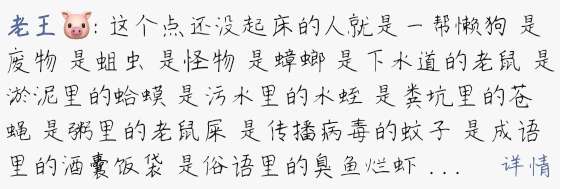 老王🐷: 这个点还没起床的人就是一帮懒狗 是
废物 是蛆虫 是怪物 是蟑螂 是下水道的老鼠 是
淤泥里的蛤蟆 是污水里的水蛭 是粪坑里的苍
蝇 是粥里的老鼠屎 是传播病毒的蚊子 是成语
里的酒囊饭袋 是俗语里的臭鱼烂虾 ... 详情